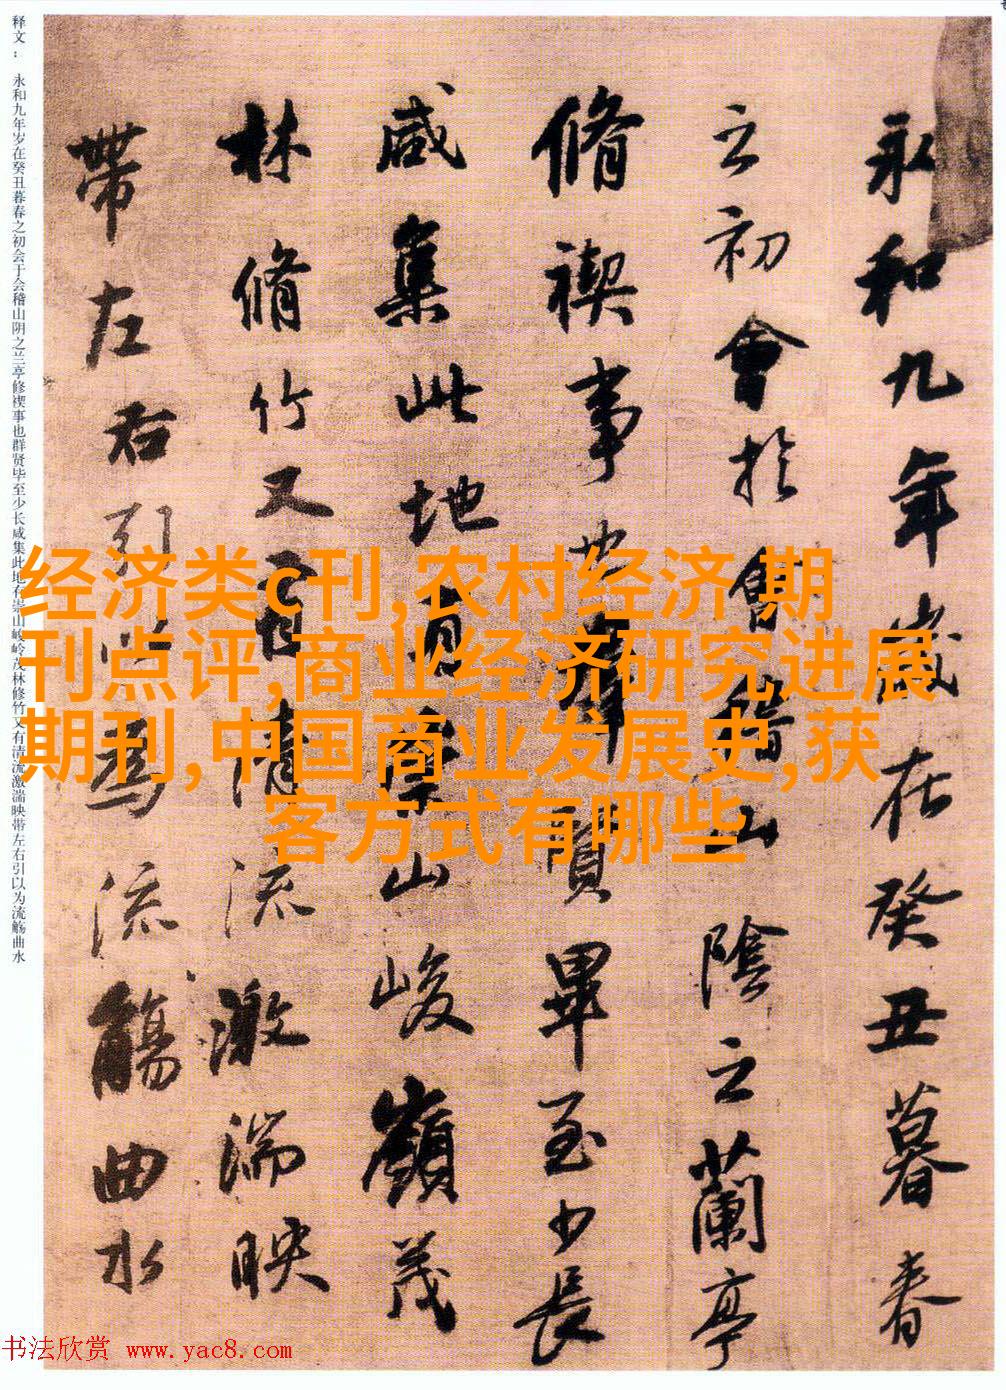 永和九年歲在癸丑暮春
之初會於會稽山陰之蘭亭
脩禊事也羣賢畢至少長
咸集此地有崇山峻嶺茂
林脩竹又有清流激湍映
帶左右引以為流觴曲水
释文：永和九年岁在癸丑暮春之初会于会稽山阴之兰亭修禊事也群贤毕至少长咸集此地有崇山峻岭茂林修竹又有清流激湍映带左右引以为流觞曲水
经济类c刊,农村经济 期
刊点评,商业经济研究进展
期刊,中国商业发展史,获
客方式有哪些
书法欣赏 www.yac8.com